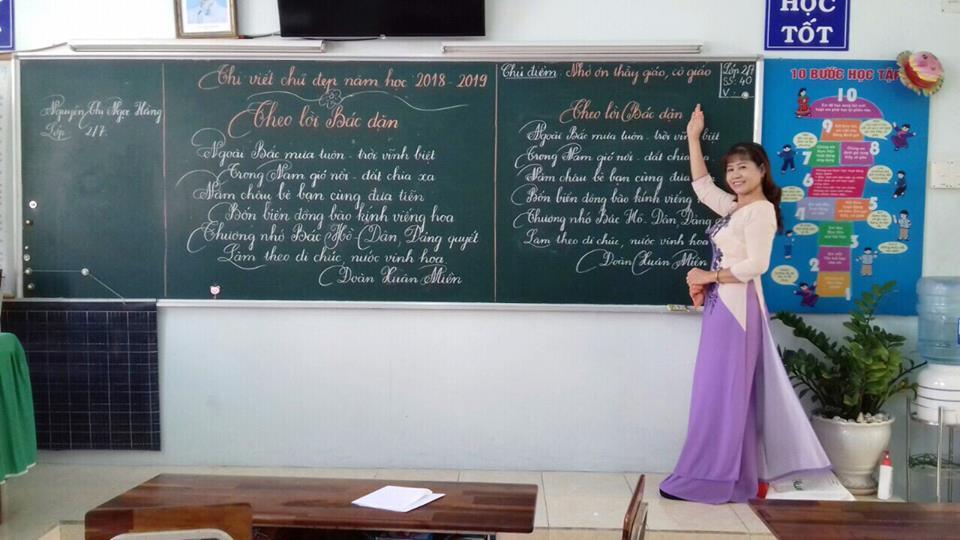 HỌC
TỐT
Thi viết chữ đẹp năm học 2018-2019
Nguyễn Thị Ngọc Hằng
Lớp 2/7
Theo lời Bác dặn
Ngoài Bắc mưa tuôn - trời vĩnh biệt
Trong Nam gió nổi - đất chia xa
Năm châu bè bạn cùng đưa tiễn
Bốn biển đồng bào kính viếng hoa
Thương nhớ Bác Hồ, Dân, Đảng quyết
Làm theo di chúc, nước vinh hoa
Đoàn Xuân Miền
Chủ điểm: Nhớ ơn thầy giáo, cô giáo
Lớp 2/7
SS: 40
V:
Theo lời Bác dặn
Ngoài Bắc mưa tuôn - trời vĩnh biệt
Trong Nam gió nổi - đất chia xa
Năm châu bè bạn cùng đưa
Bốn biển đồng bào kính viếng
Thương nhớ Bác Hồ, Dân, Đảng
Làm theo di chúc, nước vinh hoa
Đoàn Xuân Miền
10 BƯỚC HỌC TẬP
10
9
8
7
6
5
4
3
2
1